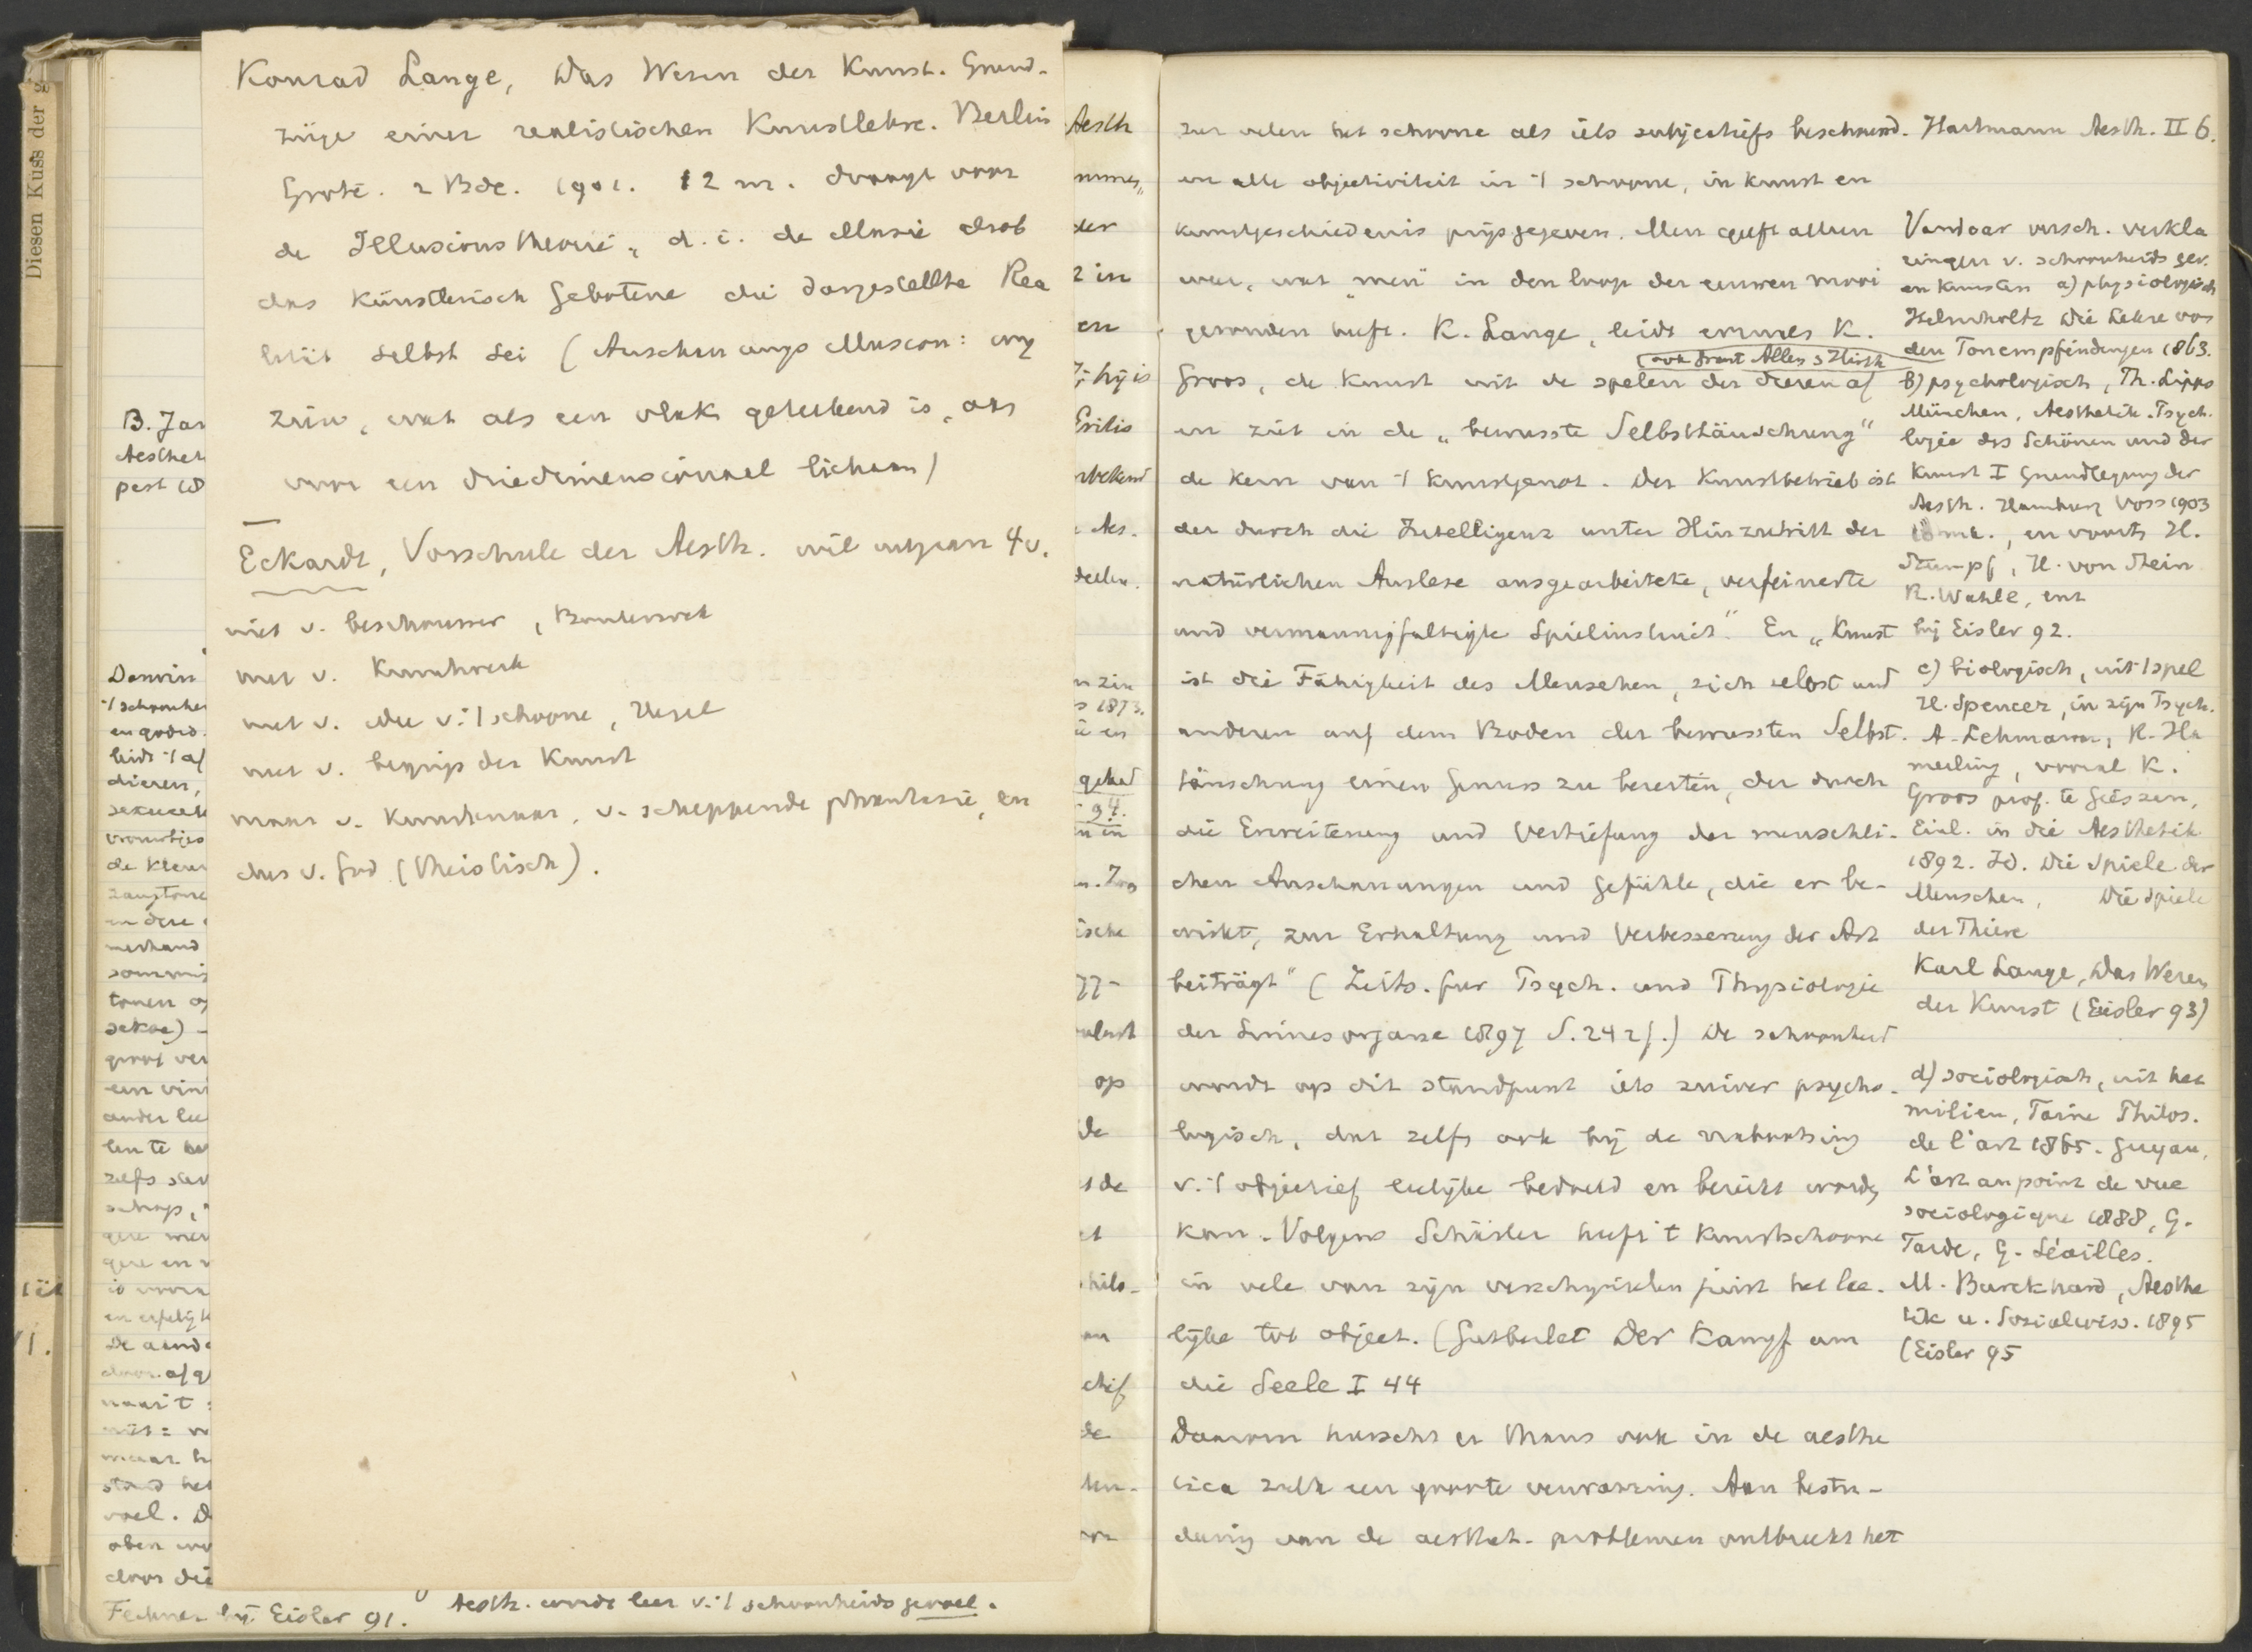 Diesen Kuss der g
Konrad Lange, Das Wesen der Kunst. Grund-
züge einer realistischen Kunstlehre. Berlin
Grote. 2 Bde. 1901. 12 m. draagt voor
de Illusions theorie, d.i. de illusie dasb
das künstlerisch Gebotene die dargestellte Rea
lität selbst sei (Anschauungs illusion: wij
zien, wat als een vlak getekend is, aan
voor een driedimensionaal lichaam)
Eckardt, Vorschule der Aesth. wil uitgaan 4 v.
niet v. beschouwer, Bouterwek
niet v. Kunstwerk
niet v. idee v. 't schoone, Hegel
niet v. begrip der Kunst
maar v. Kunstenaar, v. scheppende phantasie, en
dus v. God (theistisch).
B. Jan
Aesthet
pest 18
Darwin
't schoonhe
en godsd.
leidt 't af
dieren,
sexueele
vrouwtjes
de kleur
zangtone
andere
tonen of
sekse)
groot ver
ander lee
len te
zelfs
schap,
gere en v
en erfelijk
De aand
door af
maar h
stand het
voel. D
oben
door die
Fechner bij Eisler 91.
Aesth. wordt leer v. 't schoonheids gevoel.
Aesth
der
z in
en
hij is
Exilis
Aes.
deelen.
n zin
1873.
gehed
94.
n in
ische
op
de
s de
hilo-
de
zer velen het schoone als iets subjectiefs beschouwd.
en alle objectiviteit in 't schoone, in kunst en
kunstgeschiedenis prijsgegeven. Men geeft alleen
weer, wat "men" in den loop der eeuwen mooi
gevonden heeft. K. Lange, leidt evenals K.
(ook Grant Allen, Hirth
Groos, de Kunst uit de spelen der dieren af
en ziet in de „bewusste Selbsttäuschung"
de kern van 't kunstgenot. Der Kunstbetrieb ist
der durch die Intelligenz unter Hinzutritt der
natürlichen Auslese ausgearbeitete, verfeinerte
und vermannigfaltigte Spielinstinct". En „Kunst
ist die Fähigkeit des Menschen, sich selbst und
anderen auf dem Boden der bewussten Selbst-
täuschung einen Genuss zu bereiten, der durch
die Erweiterung und Vertiefung der menschli-
chen Anschauungen und Gefühle, die er be-
wirkt, zur Erhaltung und Verbesserung der Art
beiträgt" (Zeits. fur Psych. und Physiologie
der Sinnesorgane 1897 S. 242f.) De schoonheid
wordt op dit standpunt iets zuiver psycho-
logisch, dat zelfs ook bij de nabootsing
v. 't objectief leelijke bedoeld en bereikt worden
kan. Volgens Schasler heeft 't kunstschoone
in vele van zijn verschijnselen juist het lee-
lijke tot object. (Gutberlet Der Kampf um
die Seele I 44
Daarom heerscht er thans ook in de aesthe
tica zulk een groote verwarring. Aan bestu-
deering van de aesthet. problemen ontbreekt het
Hartmann Aesth. II 6.
Vandaar versch. verkla
ringen v. schoonheids gev.
en kunstzin a) physiologisch
Helmholtz Die Lehre von
den Tonempfindungen 1863.
b) psychologisch, Th. Lipps
München, Aesthetik. Psych-
logie des Schönen und der
Kunst I Grundlegung der
Aesth. Hamburg Voss 1903
10 mk., en voorts H.
Stumpf, H. von Stein
R. Wahle, enz
bij Eisler 92.
c) biologisch, uit 't spel
H. Spencer, in zijn Psych.
A. Lehmann, R. Ha
merling, vooral K.
Groos prof. te Giessen,
Einl. in die Aesthetik
1892. Id. Die Spiele der
Menschen, Die Spiele
der Thiere
Karl Lange, Das Wesen
der Kunst (Eisler 93)
d) sociologisch, uit het
milieu, Taine Philos.
de l'art 1865. Guyau,
L'art au point de vue
sociologique 1888, G.
Tarde, G. Séailles.
M. Burckhard, Aesthe
tik u. Sozialwiss. 1895
(Eisler 95